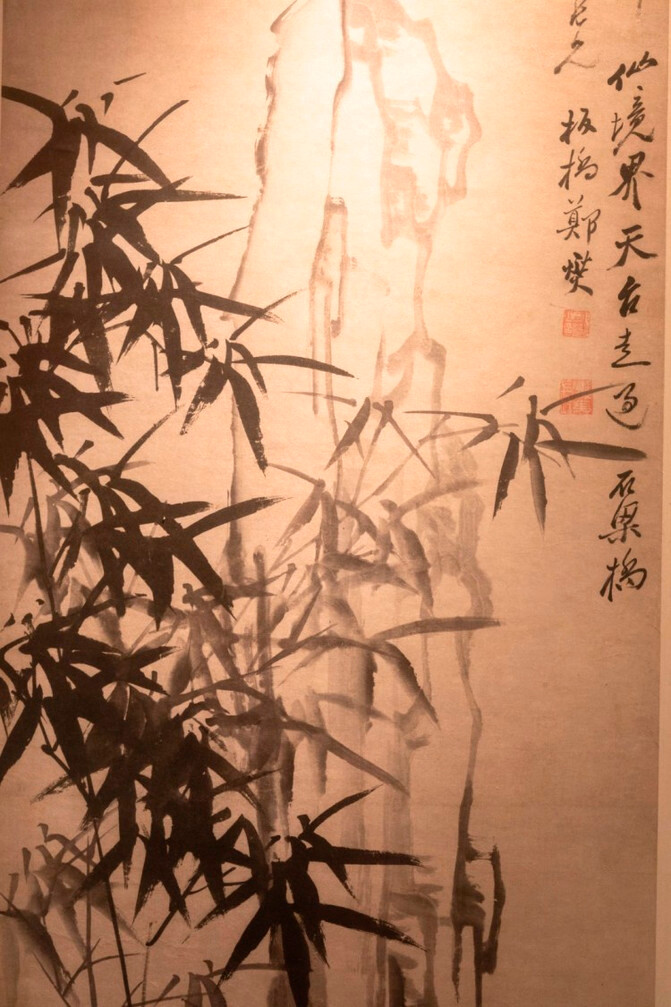 仙境界天台走過石梁橋
板橋鄭燮